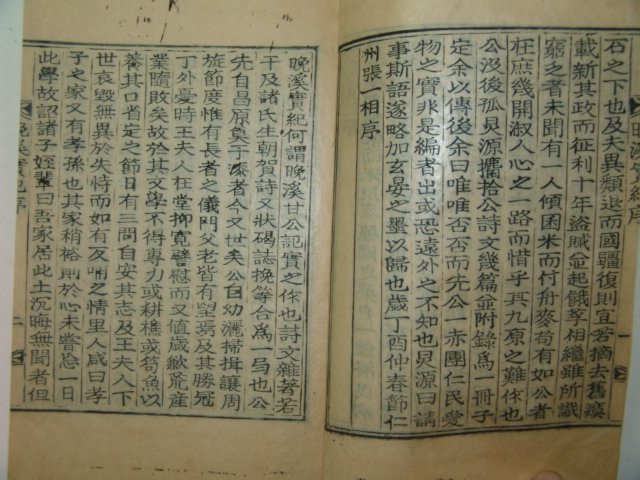 石之下也及夫異類退而國疆復則宜若摘去舊瘼
載新其政而征利十年盜賊並起餓莩相繼雖所識
窮乏者未聞有一人傾囷米而付舟麥苟有如公者
在庶幾開淑人心之一路而惜乎其九原之難作也
公沒後孤炅源攟拾公詩文幾篇並附錄爲一冊子
定余以傳後余曰唯唯否否而先公一赤團仁民愛
物之實非是編者出或恐遠外之不知也炅源曰請
事斯語遂略加玄晏之墨以歸也歲丁酉仲春節仁
州張一相序
晚溪實紀何謂晚溪甘公記實之作也詩文雜著若
干及諸氏生朝賀詩又狀碣誌挽等合爲一局也公
先自昌原奠于漆者今又世矣公自幼灑掃揖讓周
旋節度惟有長者之儀門父老皆有望焉及其勝冠
丁外憂時王夫人在堂抑寬譬慰而又値歲歉荒産
業隨敗矣故於其文學不得專力或耕樵或笱魚以
養其口省定之節日有三問自安其志及王夫人下
世哀毀無異於失恃而如有反哺之情里人咸曰孝
子之家又有孝孫也其家稍裕則於心未嘗忘一日
此學故詔諸子姪輩曰吾家居此土沉晦無聞者但
晚溪實紀序
二
一